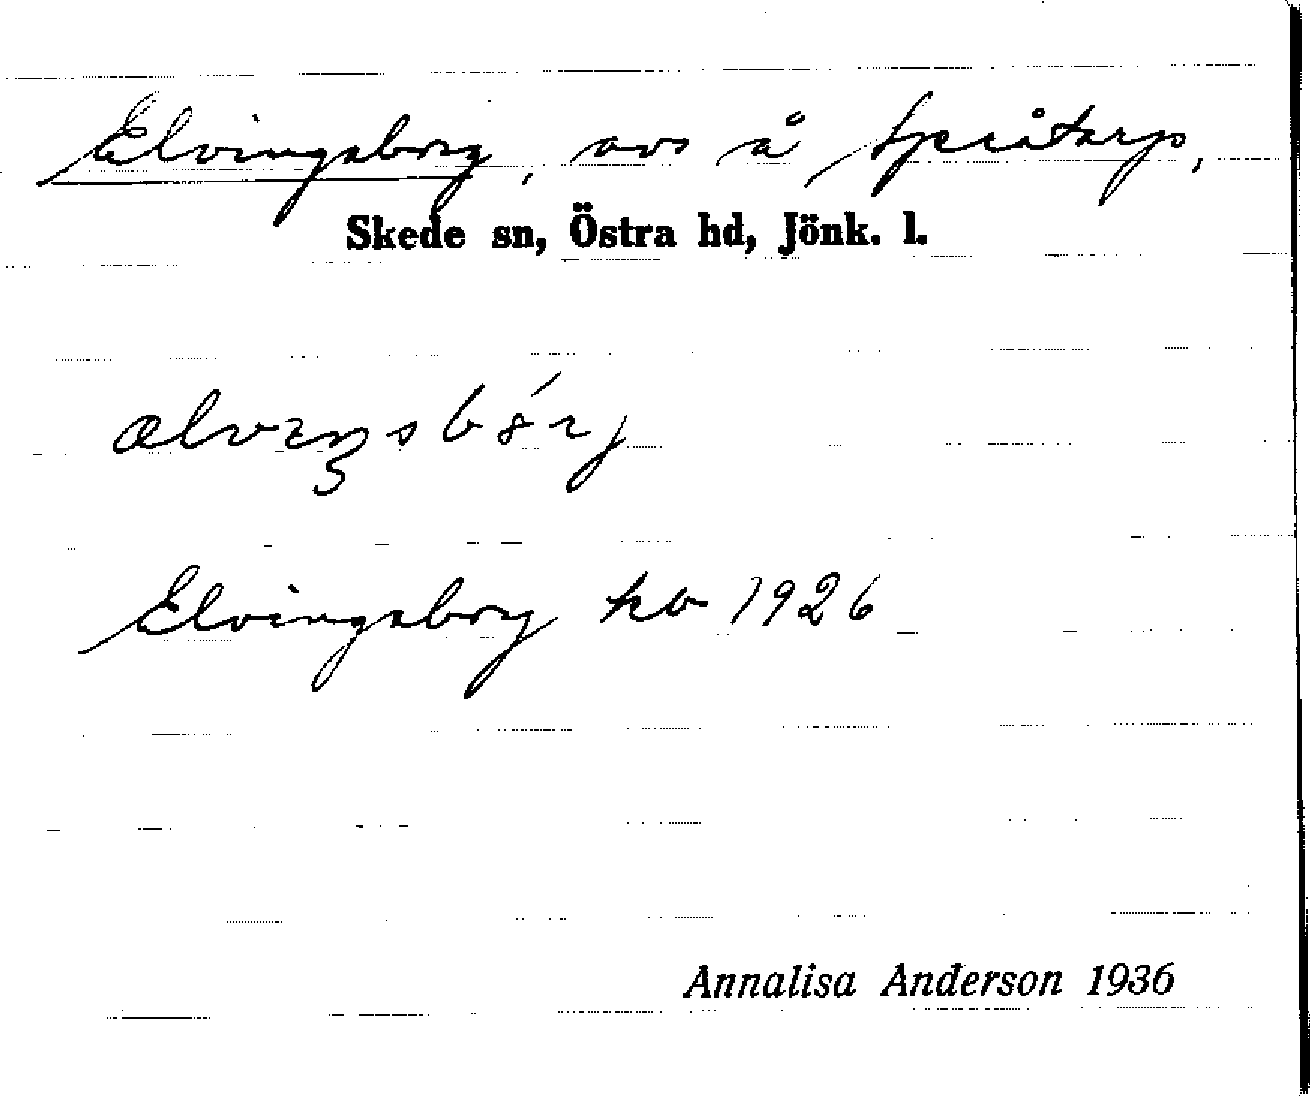 Elvingsborg, avs å Spexåtarp,
Skede sn, Östra hd, Jönk. l.
Elvingsborg kb 1926
Annalisa Anderson 1936